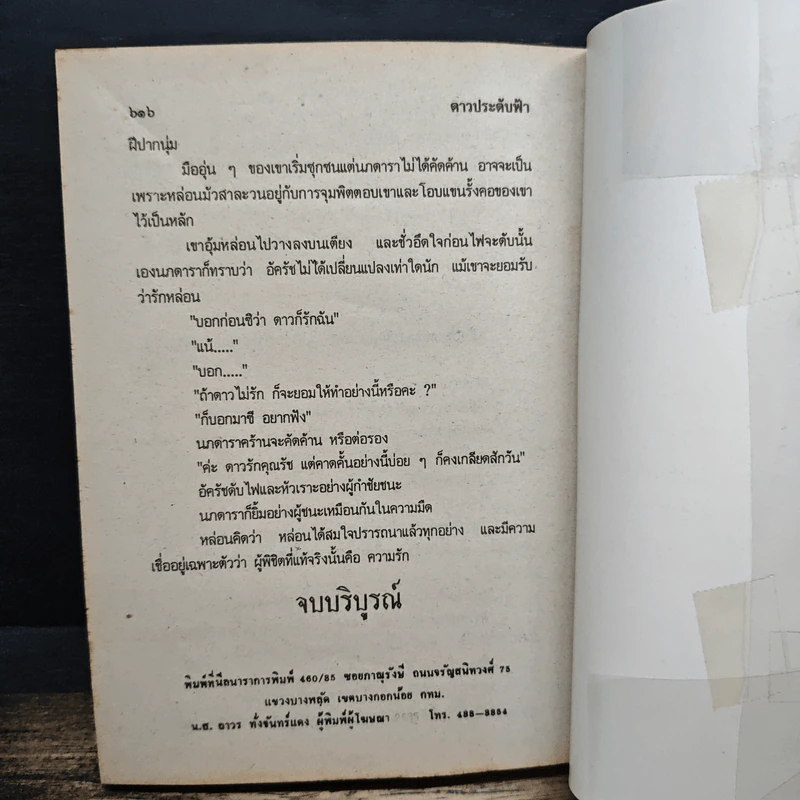 ๖๑๖ ดาวประดับฟ้า
ฝีปากนุ่ม
มืออุ่น ๆ ของเขาเริ่มซุกซนแต่นภดาราไม่ได้คัดค้าน อาจจะเป็น
เพราะหล่อนมัวสาละวนอยู่กับการจุมพิตตอบเขาและโอบแขนรั้งคอของเขา
ไว้เป็นหลัก
เขาอุ้มหล่อนไปวางลงบนเตียง และชั่วอึดใจก่อนไฟจะดับนั้น
เองนภดาราก็ทราบว่า อัครัชไม่ได้เปลี่ยนแปลงเท่าใดนัก แม้เขาจะยอมรับ
ว่ารักหล่อน
"บอกก่อนซิว่า ดาวก็รักฉัน"
"แน้....."
"บอก....."
"ถ้าดาวไม่รัก ก็จะยอมให้ทำอย่างนี้หรือคะ ?"
"ก็บอกมาซี อยากฟัง"
นภดาราคร้านจะคัดค้าน หรือต่อรอง
"ค่ะ ดาวรักคุณรัช แต่คาดคั้นอย่างนี้บ่อย ๆ ก็คงเกลียดสักวัน"
อัครัชดับไฟและหัวเราะอย่างผู้กำชัยชนะ
นภดาราก็ยิ้มอย่างผู้ชนะเหมือนกันในความมืด
หล่อนคิดว่า หล่อนได้สมใจปรารถนาแล้วทุกอย่าง และมีความ
เชื่ออยู่เฉพาะตัวว่า ผู้พิชิตที่แท้จริงนั้นคือ ความรัก
จบบริบูรณ์
พิมพ์ที่นีลนาราการพิมพ์ 460/85 ซอยภาณุรังษี ถนนจรัญสนิทวงศ์ 75
แขวงบางพลัด เขตบางกอกน้อย กทม.
น.ส. ถาวร ทั่งจันทร์แดง ผู้พิมพ์ผู้โฆษณา โทร.